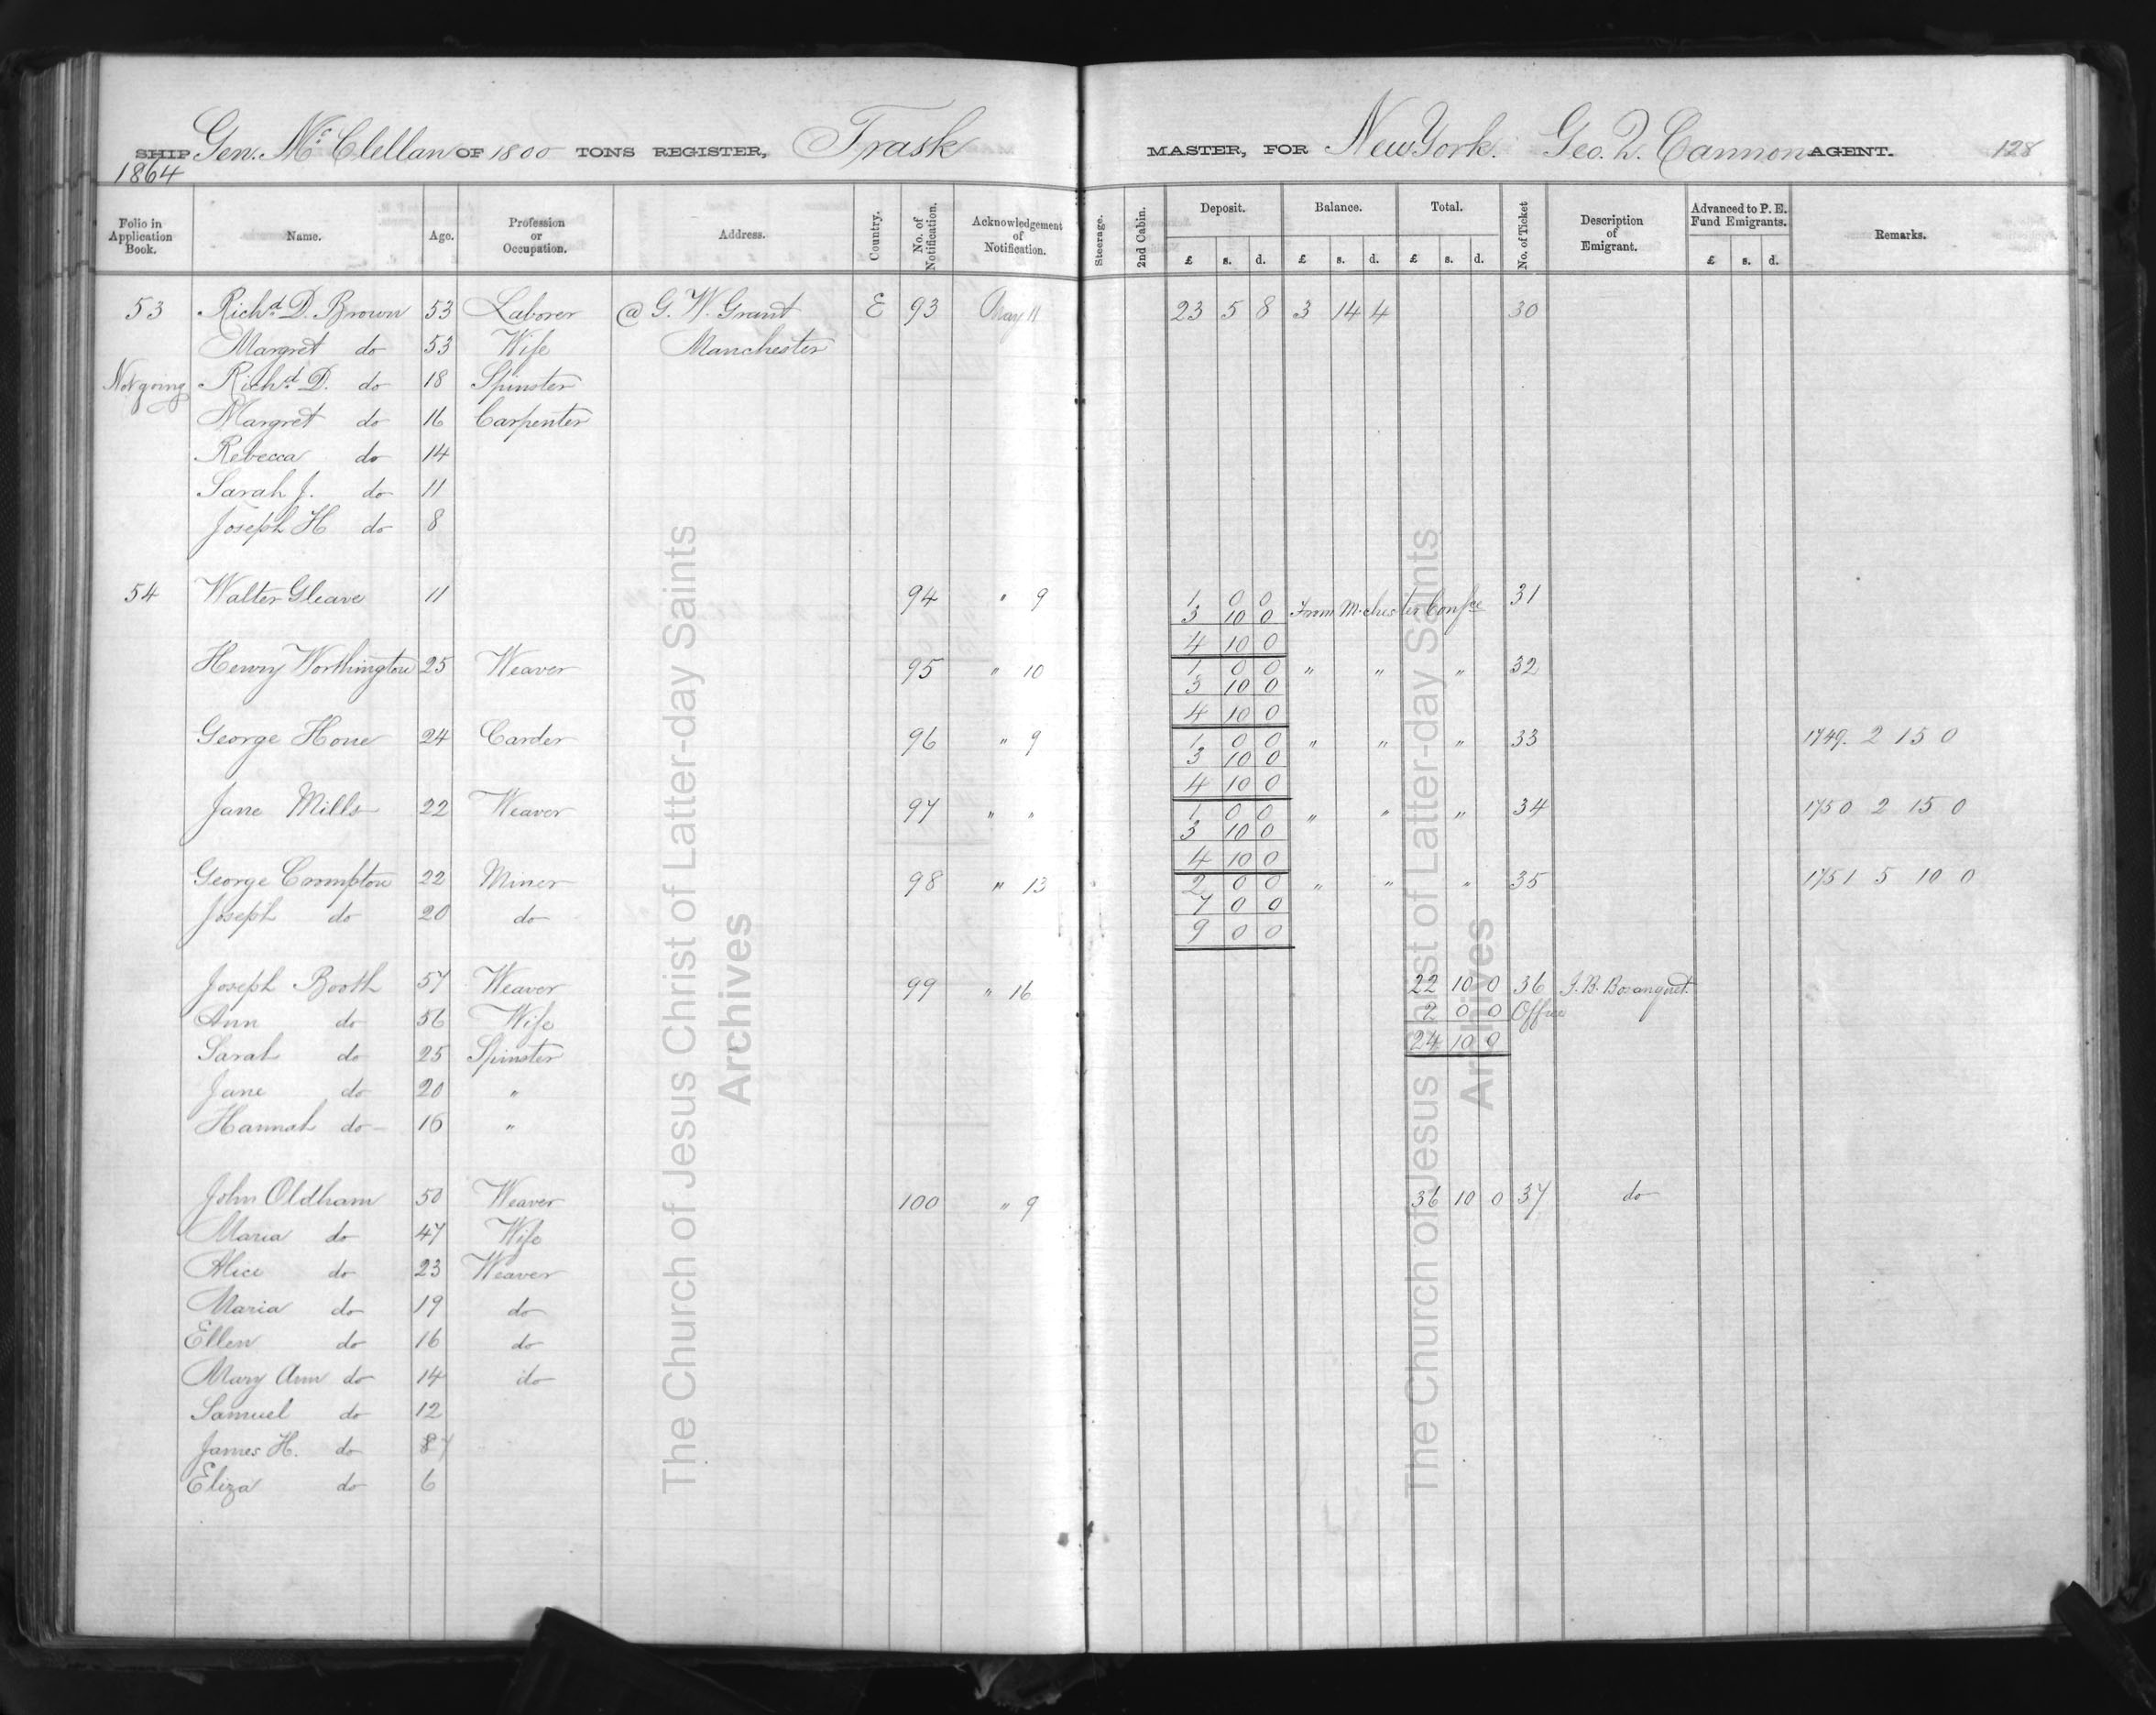 SHIP Gen. Mc Clellan OF 1800 TONS REGISTER, Trask MASTER, FOR New York. Geo. Q. Cannon AGENT. 128
1864
Folio in Application Book. Name. Age. Profession or Occupation. Address. Country. No. of Notification. Acknowledgement of Notification. Steerage. 2nd Cabin. Deposit. £ s. d. Balance. £ s. d. Total. £ s. d. No. of Ticket Description of Emigrant. Advanced to P. E. Fund Emigrants. £ s. d. Remarks.
53 Richd. D. Brown 53 Laborer @ G. W. Grant E 93 May 11 23 5 8 3 14 4 30
Margret do 53 Wife Manchester
Not going Richd. D. do 18 Spinster
Margret do 16 Carpenter
Rebecca do 14
Sarah J. do 11
Joseph H do 8
54 Walter Gleave 11 94 " 9 1 0 0 31
3 10 0 From M.chester Confce
4 10 0
Henry Worthington 25 Weaver 95 " 10 1 0 0 " " " 32
3 10 0
4 10 0
George Hone 24 Carder 96 " 9 1 0 0 " " " 33 1749. 2 15 0
3 10 0
4 10 0
Jane Mills 22 Weaver 97 " " 1 0 0 " " " 34 1750 2 15 0
3 10 0
4 10 0
George Crompton 22 Miner 98 " 13 2 0 0 " " " 35 1751 5 10 0
Joseph do 20 do 7 0 0
9 0 0
Joseph Booth 57 Weaver 99 " 16 22 10 0 36 J. B. Bosanquet
Ann do 56 Wife 2 0 0 Office
Sarah do 25 Spinster 24 10 0
Jane do 20 "
Hannah do 16 "
John Oldham 50 Weaver 100 " 9 36 10 0 37 do
Maria do 47 Wife
Alice do 23 Weaver
Maria do 19 do
Ellen do 16 do
Mary Ann do 14 do
Samuel do 12
James H. do 87
Eliza do 6
The Church of Jesus Christ of Latter-day Saints
Archives
The Church of Jesus Christ of Latter-day Saints
Archives